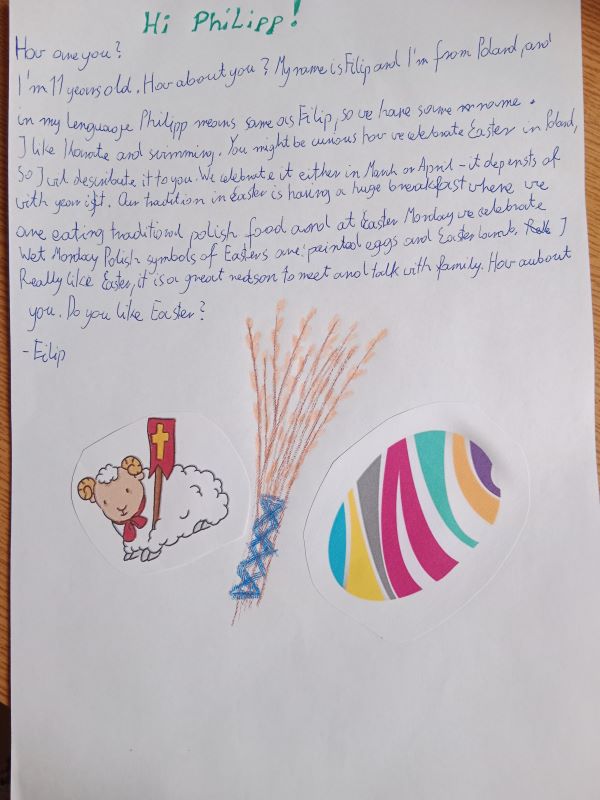 Hi Philipp!
How are you?
I'm 11 years old. How about you? My name is Filip and I'm from Poland, and
in my lenguage Philipp means same as Filip, so we have same name.
I like Karate and swimming. You might be curious how we celebrate Easter in Poland,
So I wil describute it to you. We celebrate it either in March or April - it depents of
with year is it. Our tradition in Easter is having a huge breakfast where we
are eating traditional polish food and at Easter Monday we celebrate
Wet Monday Polish symbols of Easters are: painted eggs and Easter lamb. I
Really like Easter, it is a great redson to meet and talk with family. How aubout
you. Do you like Easter?
- Filip